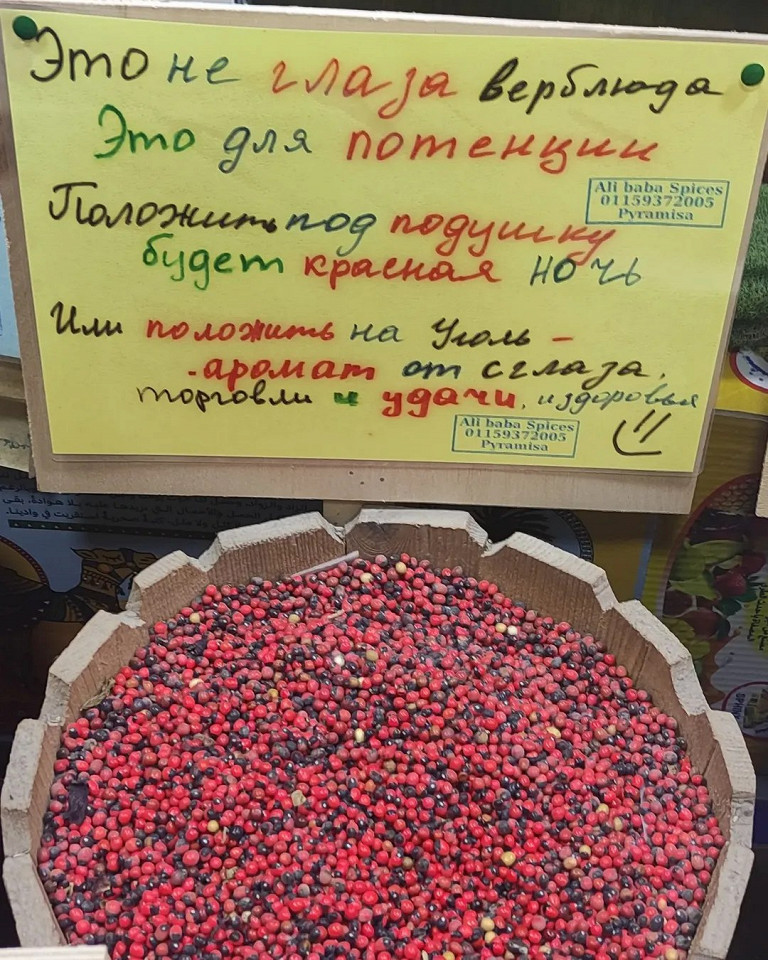 Это не глаза верблюда
Это для потенции
Ali baba Spices
01159372005
Pyramisa
Положить под подушку
будет красная ночь
Или положить на Уголь -
- аромат от сглаза,
торговли и удачи, издоровья
Ali baba Spices
01159372005
Pyramisa